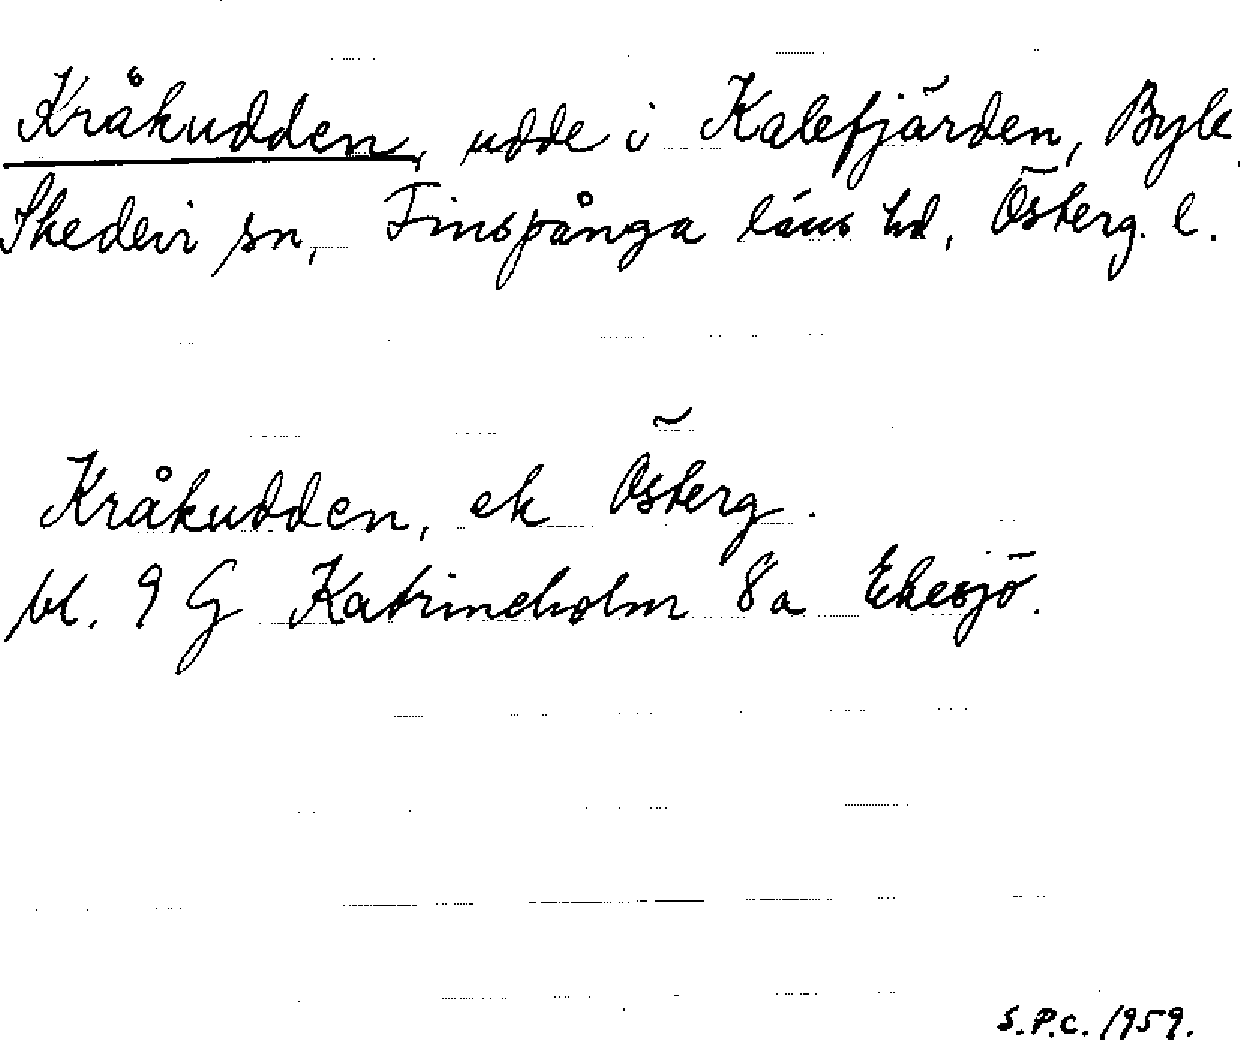 Kråkudden, udde i Kalefjärden, Byle,
Skedevi sn, Finspånga läns hd, Österg. l.
Kråkudden, ek Österg.
bl. 9 G Katrineholm 8a Ekesjö.
S.P.C. 1959.